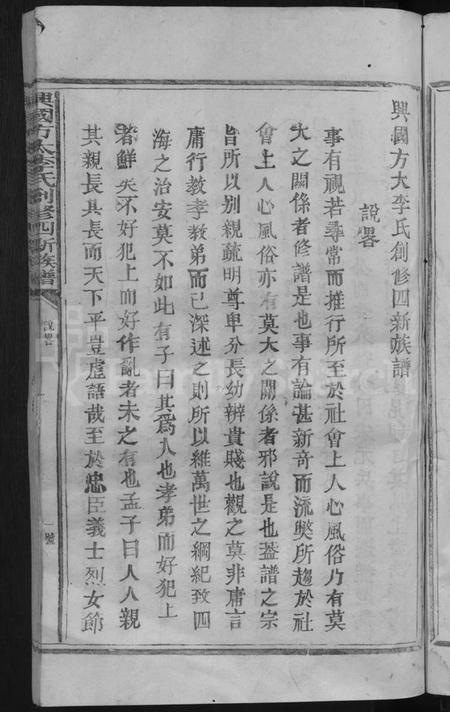 興國方大李氏創修四新族譜
說畧
事有視若尋常而推行所至於社會上人心風俗乃有莫
大之關係者修譜是也事有論甚新奇而流獘所趨於社
會上人心風俗亦有莫大之關係者邪說是也葢譜之宗
旨所以別親疏明尊卑分長幼辨貴賤也觀之莫非庸言
庸行教孝教弟而已深述之則所以維萬世之綱紀致四
海之治安莫不如此有子曰其爲人也孝弟而好犯上
者鮮矣不好犯上而好作亂者未之有也孟子曰人人親
其親長其長而天下平豈虛語哉至於忠臣義士烈女節
興國方大李氏創修四新族譜
說畧
一號